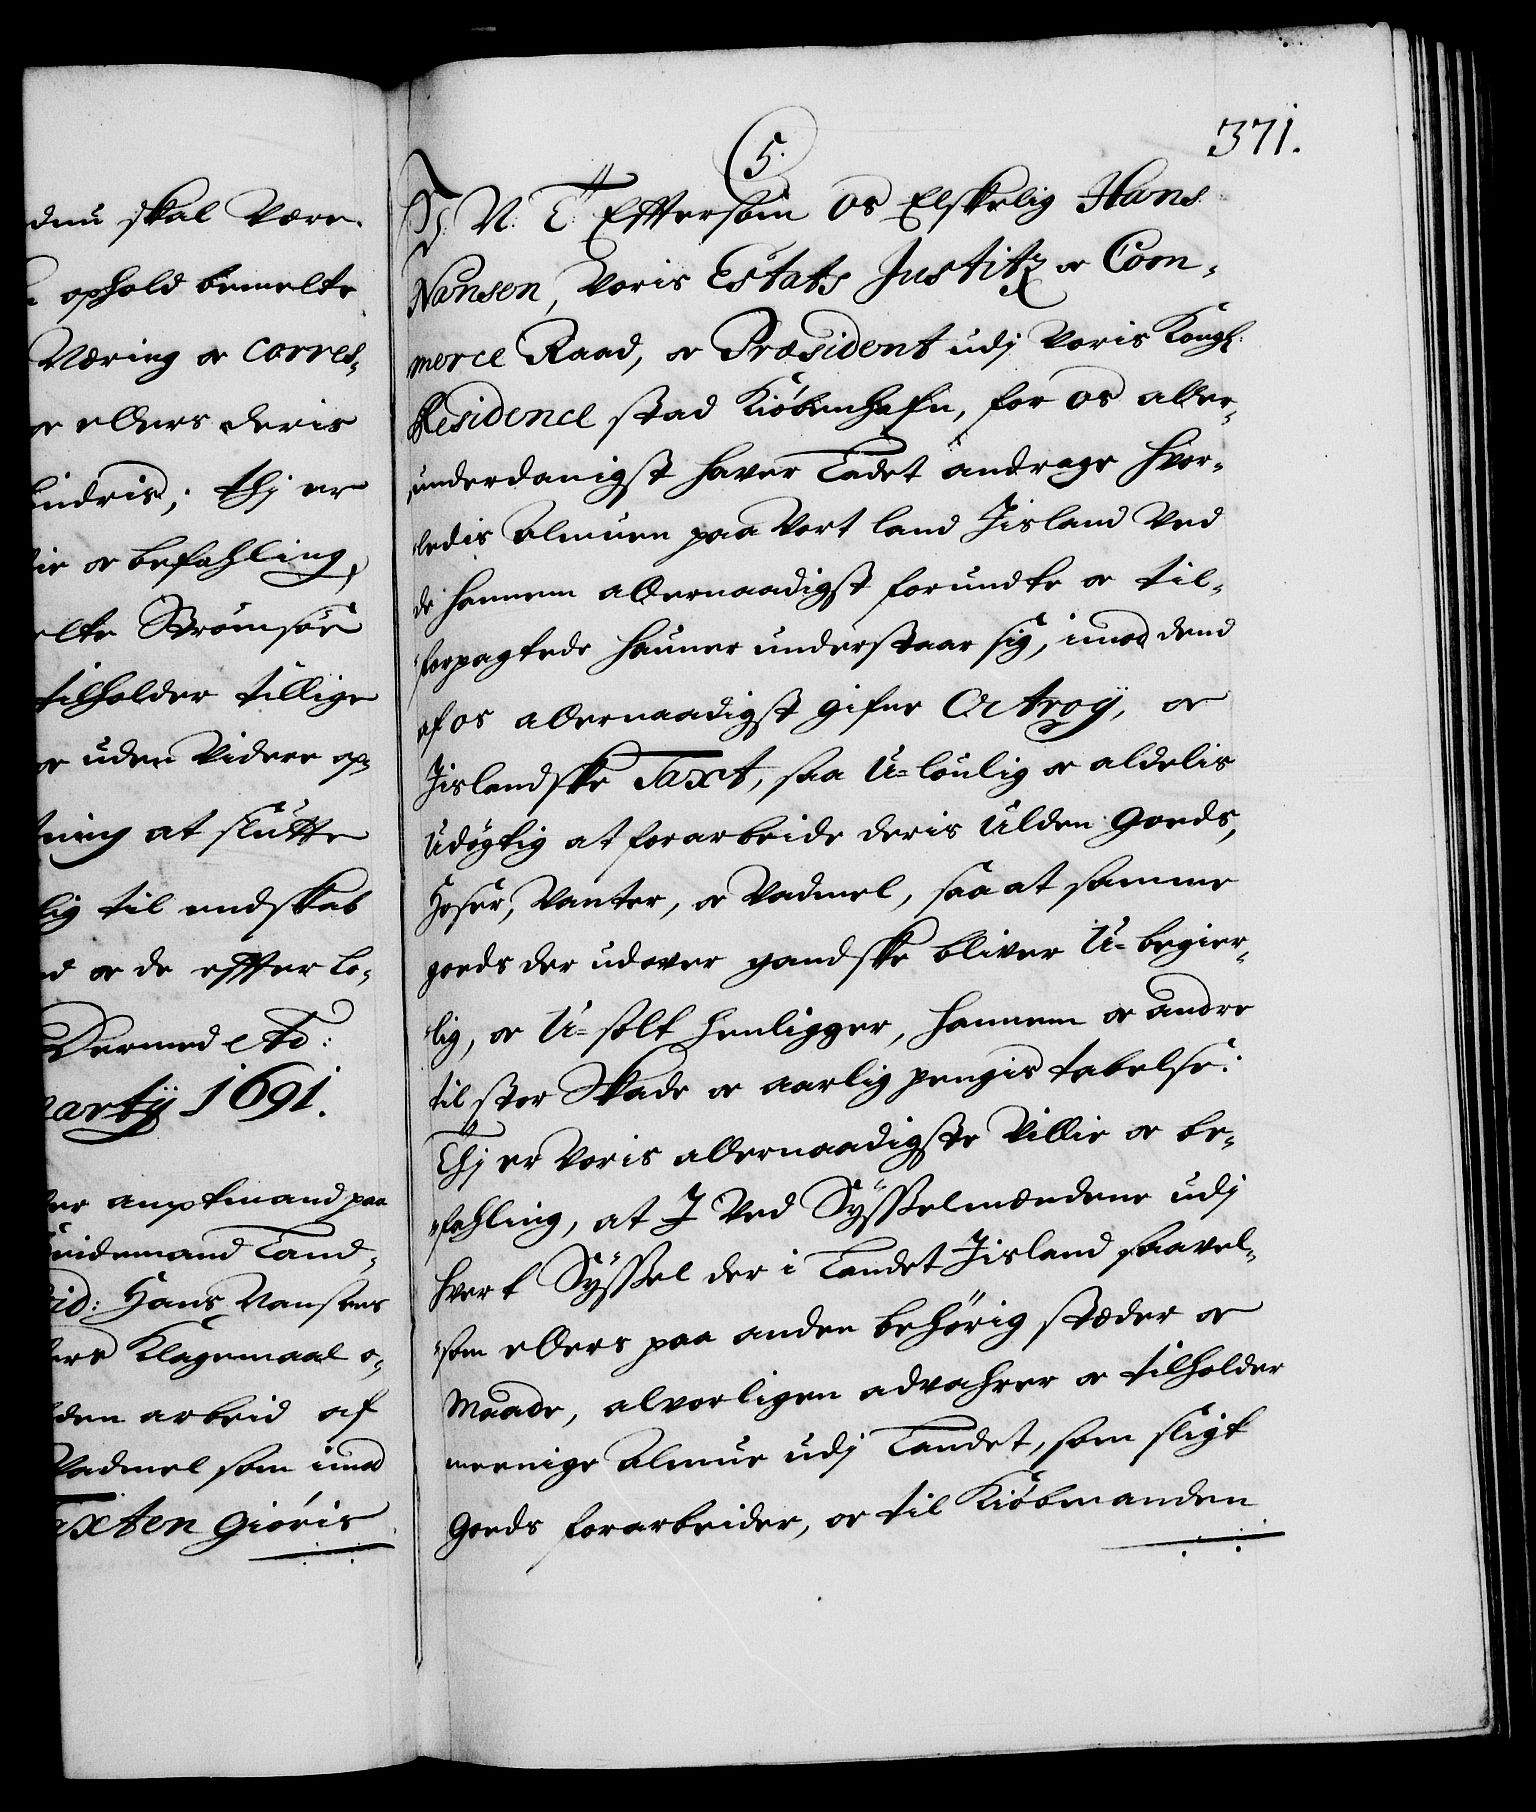 dnu skal Være
ophold bemelte
Næring oc corres,
oc ellers deris
hindris; thj er
lie oc befahling,
elte Strömsöe
tilholder tillige
oc uden Videre op,
ning at slutte
lig til endskab
d oc de effter Lo,
Dermed etc:
arty 1691.
er amptmand paa
Land,
id: Hans Nansens
ers Klagemaal o,
den arbeid af
Vadmel som imod
axten giöris
371.
5.
C. N. T. Effersom Os Elskelig Hans
Nansen, Voris Estats Justitz oc Com,
merce Raad, oc Præsident udj Voris Kongl:
Residence stad Kiöbenhafn, for Os aller,
underdanigst haver Ladet andrage hvor,
ledis Almuen paa Vort land Jisland Ved
de hannem allernaadigst forundte oc til,
forpagtede hauner understaar sig, imod dend
af os allernaadigst gifne Octroÿ, oc
Jislandske Taxt, saa U=loulig oc aldelis
Udögtig at forarbeide deris Ulden Goeds,
Hoser, Vanter, oc Vadmel, saa at samme
goeds der udover gandske bliver U=begier,
lig, oc U=solt henligger, hannem oc andre
til stor Skade oc aarlig pengis tabelse:
Thj er Voris allernaadigste Villie oc be,
fahling, at J Ved Sÿsselmændene udj
hvert Sÿssel der i Landet Jisland saavel,
som ellers paa anden behörig stæder oc
Maade, alvorligen advahrer oc tilholder
meenige Almue udj Landet, som sligt
Goeds forarbeider, oc til Kiöbmanden